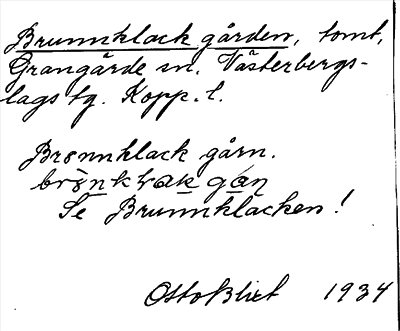 Brunnklack gården, tomt,
Grangärde sn. Västerbergs-
lags tg. Kopp. l.
Brønnklack gårn.
Se Brunnklacken!
Otto Blixt 1934